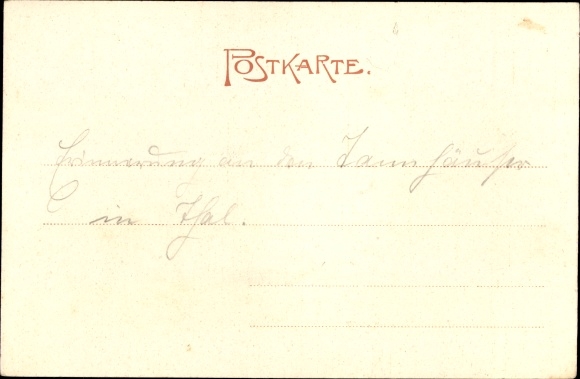 POSTKARTE.
Erinnerung an den Tannhäuser
in Thal.